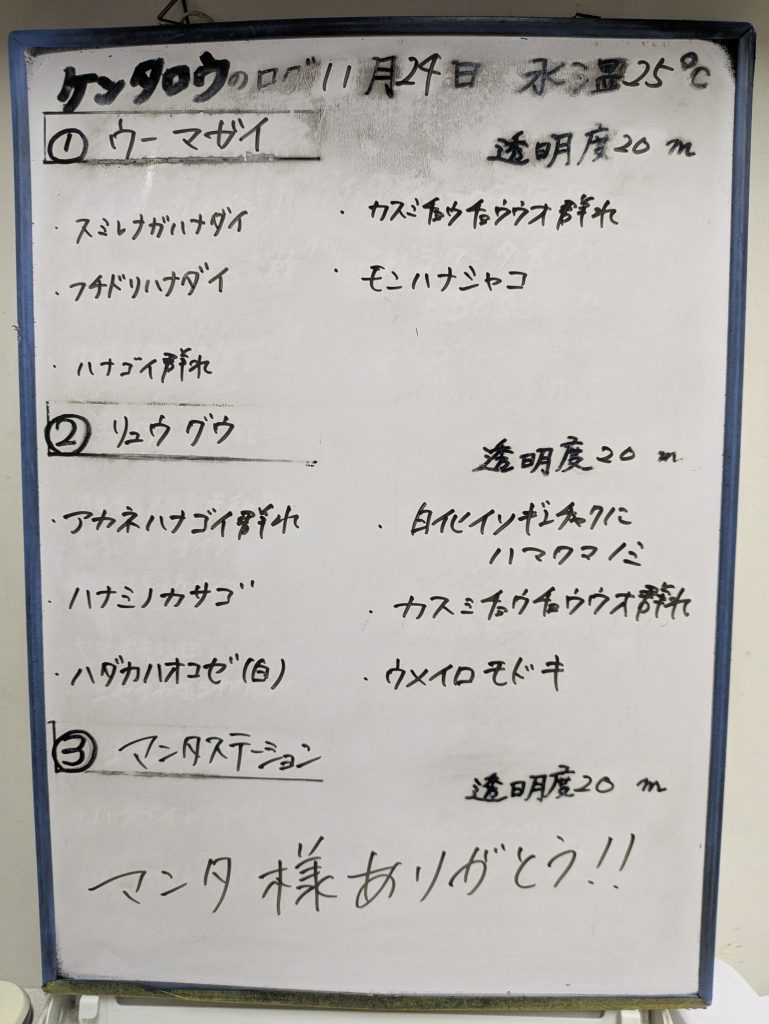 ケンタロウのログ 11月24日 水温25℃
① ウーマガイ
透明度20 m
・スミレナガハナダイ
・カスミチョウチョウウオ群れ
・フチドリハナダイ
・モンハナシャコ
・ハナゴイ群れ
② リュウグウ
透明度20 m
・アカネハナゴイ群れ
・白化イソギンチャクに
ハマクマノミ
・ハナミノカサゴ
・カスミチョウチョウウオ群れ
・ハダカハオコゼ(白)
・ウメイロモドキ
③ マンタステーション
透明度20 m
マンタ様ありがとう!!